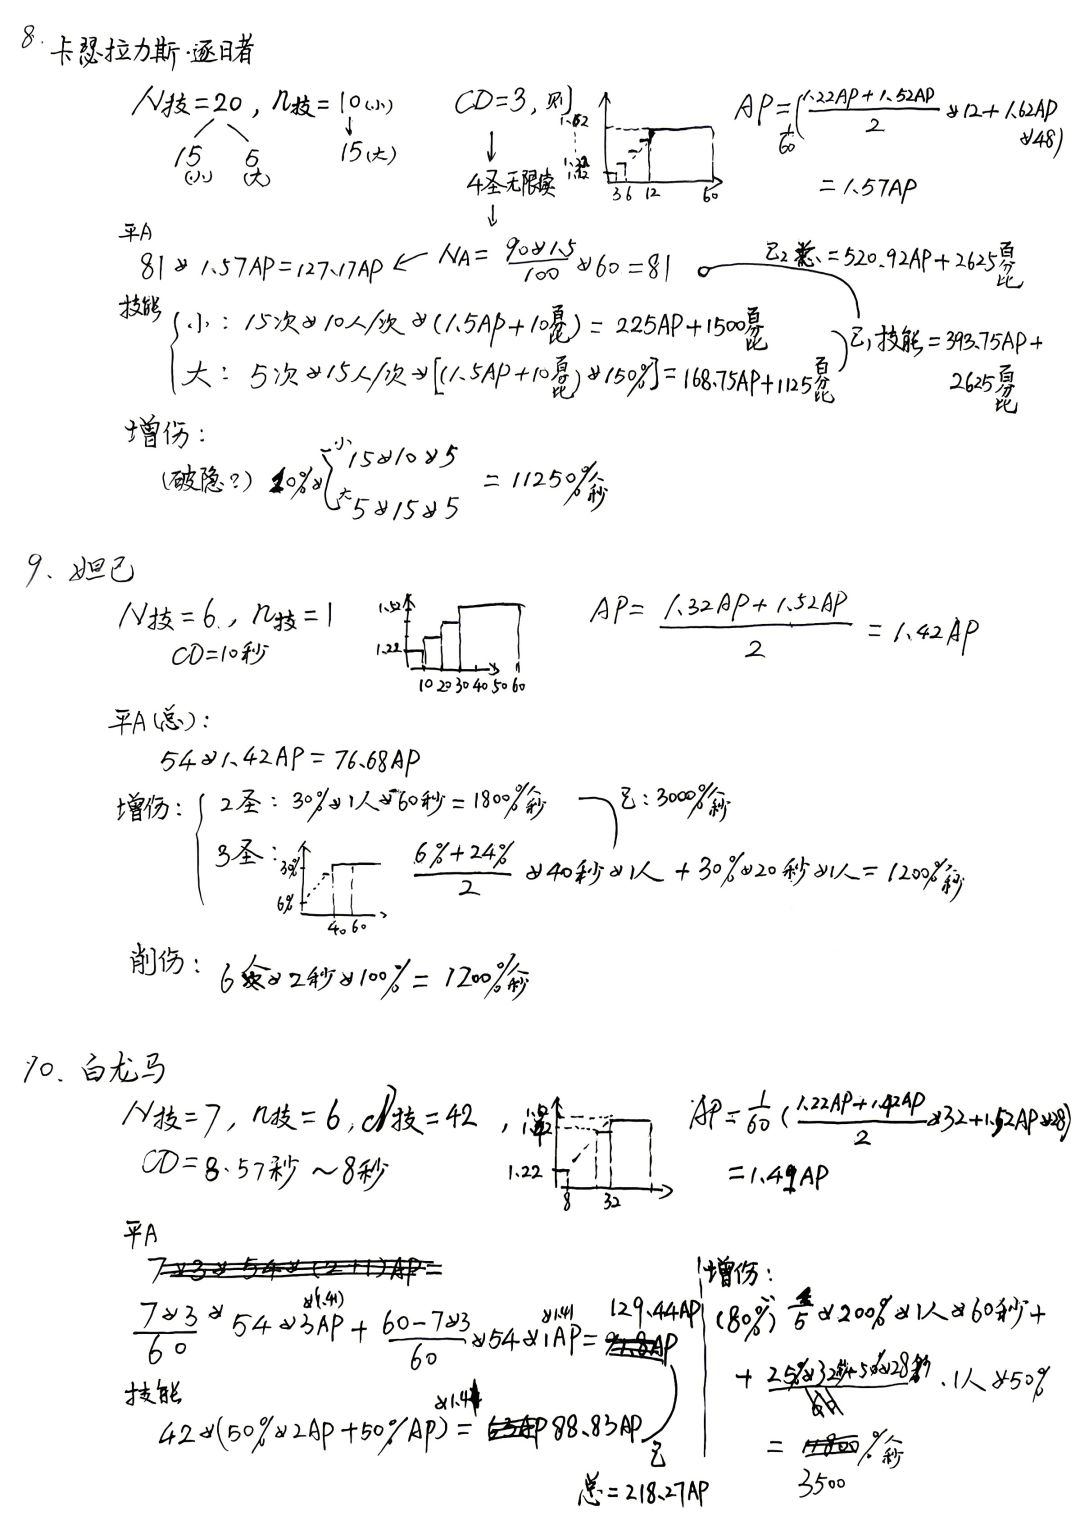 8. 卡瑟拉力斯·逐日者
N技=20, n技=10(小)
15(小) 5(大) 15(大)
CD=3, 则
4圣无限续
1.62
3 6 12 60
AP=1/60(1.22AP+1.52AP/2×12+1.62AP×48)
=1.57AP
平A
81×1.57AP=127.17AP ← NA=90×1.5/100×60=81
总=520.92AP+2625百分比
技能
小: 15次×10人/次×(1.5AP+10百分比)=225AP+1500百分比
大: 5次×15人/次×[(1.5AP+10百分比)×150%]=168.75AP+1125百分比
技能=393.75AP+2625百分比
增伤:
(破隐?) 10%×
小 15×10×5
大 5×15×5
=11250%/秒
9. 妲己
N技=6, n技=1
CD=10秒
1.52
1.22
10 20 30 40 50 60
AP=1.32AP+1.52AP/2=1.42AP
平A(总):
54×1.42AP=76.68AP
增伤:
2圣: 30%×1人×60秒=1800%/秒
总: 3000%/秒
3圣:
30%
6%
40 60
6%+24%/2×40秒×1人+30%×20秒×1人=1200%/秒
削伤: 6次×2秒×100%=1200%/秒
10. 白龙马
N技=7, n技=6, N技=42,
CD=8.57秒~8秒
1.22
8 32
AP=1/60(1.22AP+1.42AP/2×32+1.52AP×28)
=1.41AP
平A
7×3×54×(2+1)AP=
7×3/60×54×3AP(×1.41)+60-7×3/60×54×1AP(×1.41)=91.8AP 129.44AP
技能
42×(50%×2AP+50%AP)×1.41=63AP 88.83AP
总=218.27AP
增伤:
(80%) 4/5×200%×1人×60秒+
+25%×32秒+50%×28秒·1人×50%
=1800%/秒
3500